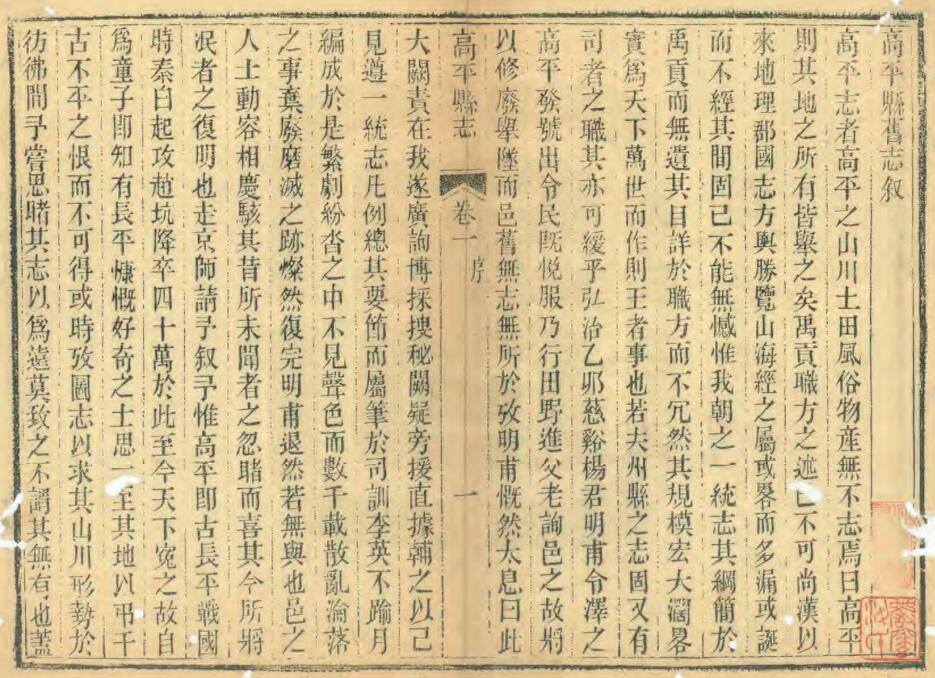 高平縣舊志叙
高平志者高平之山川土田風俗物産無不志焉曰高平
則其地之所有皆舉之矣禹貢職方之述已不可尚漢以
來地理郡國志方輿勝覽山海經之屬或畧而多漏或誕
而不經其間固已不能無憾惟我朝之一統志其綱簡於
禹貢而無遺其目詳於職方而不冗然其規模宏大濶畧
實爲天下萬世而作則王者事也若夫州縣之志固又有
司者之職其亦可緩乎弘治乙邜慈谿楊君明甫令澤之
高平發號出令民旣悅服乃行田野進父老詢邑之故將
以修廢舉墜而邑舊無志無所於攷明甫慨然太息曰此
高平縣志 卷一 序 一
大闕責在我遂廣詢博採搜秘闕疑旁援直據輔之以己
見遵一統志凡例總其要節而屬筆於司訓李英不踰月
編成於是繁劇紛沓之中不見聲色而數千載散亂淪落
之事棄廢磨滅之跡燦然復完明甫退然若無與也邑之
人士動容相慶駭其昔所未聞者之忽睹而喜其今所將
泯者之復明也走京師請予叙予惟高平卽古長平戰國
時秦白起攻趙坑降卒四十萬於此至今天下寃之故自
爲童子卽知有長平慷慨好奇之士思一至其地以弔千
古不平之恨而不可得或時攷圖志以求其山川形勢於
彷彿間予嘗思睹其志以爲遠莫致之不謂其無有也蓋